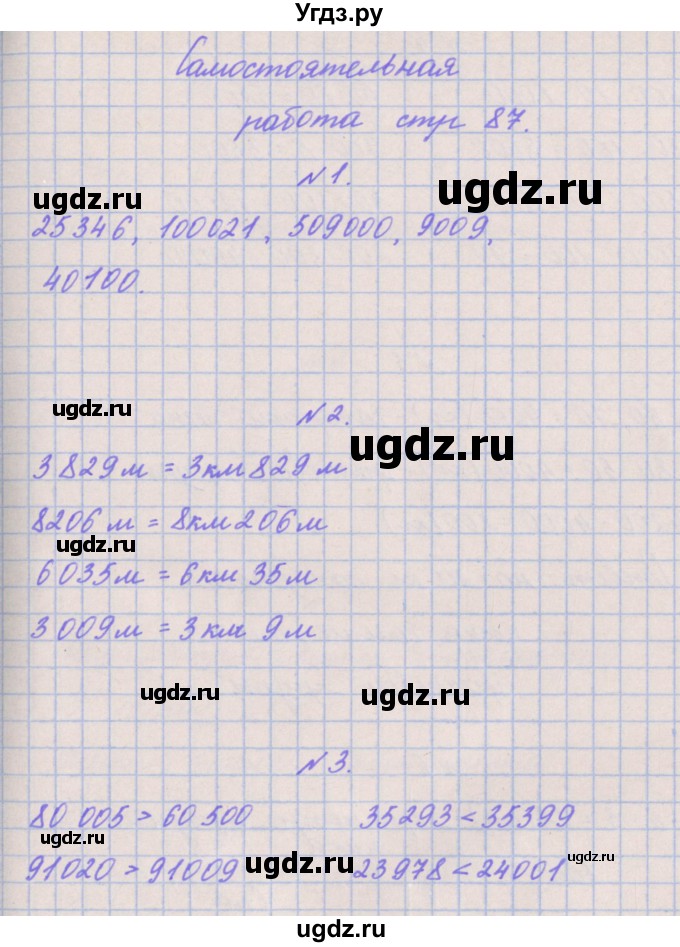 Угдз.ру
Самостоятельная
работа стр 87.
№1.
ugdz.ru
ugdz.ru
25346, 100021, 509000, 9009,
40100.
№2.
ugdz.ru
ugdz.ru
3829м = 3км 829м
8206м = 8км 206м
ugdz.ru
6035м = 6км 35м
3009м = 3км 9м
ugdz.ru
ugdz.ru
№3.
80 005 > 60 500 35293 < 35399
ugdz.ru
91020 > 91009 ugdz.ru 23978 < 24001 ugdz.ru
ugdz.ru